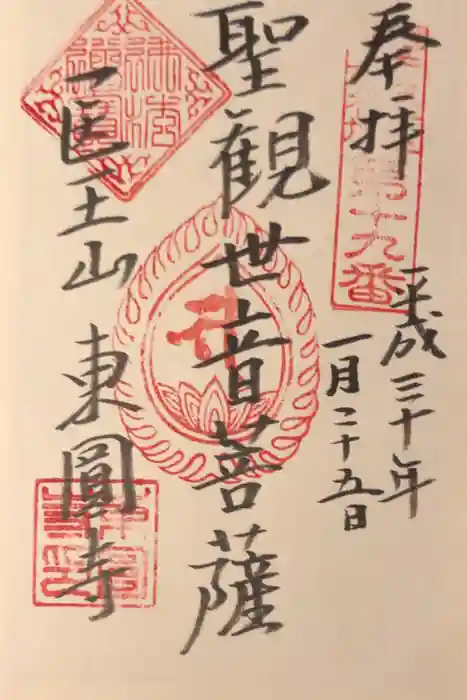 奉拝
平成三十年
一月二十五日
第十九番
聖観世音菩薩
医王山 東圓寺